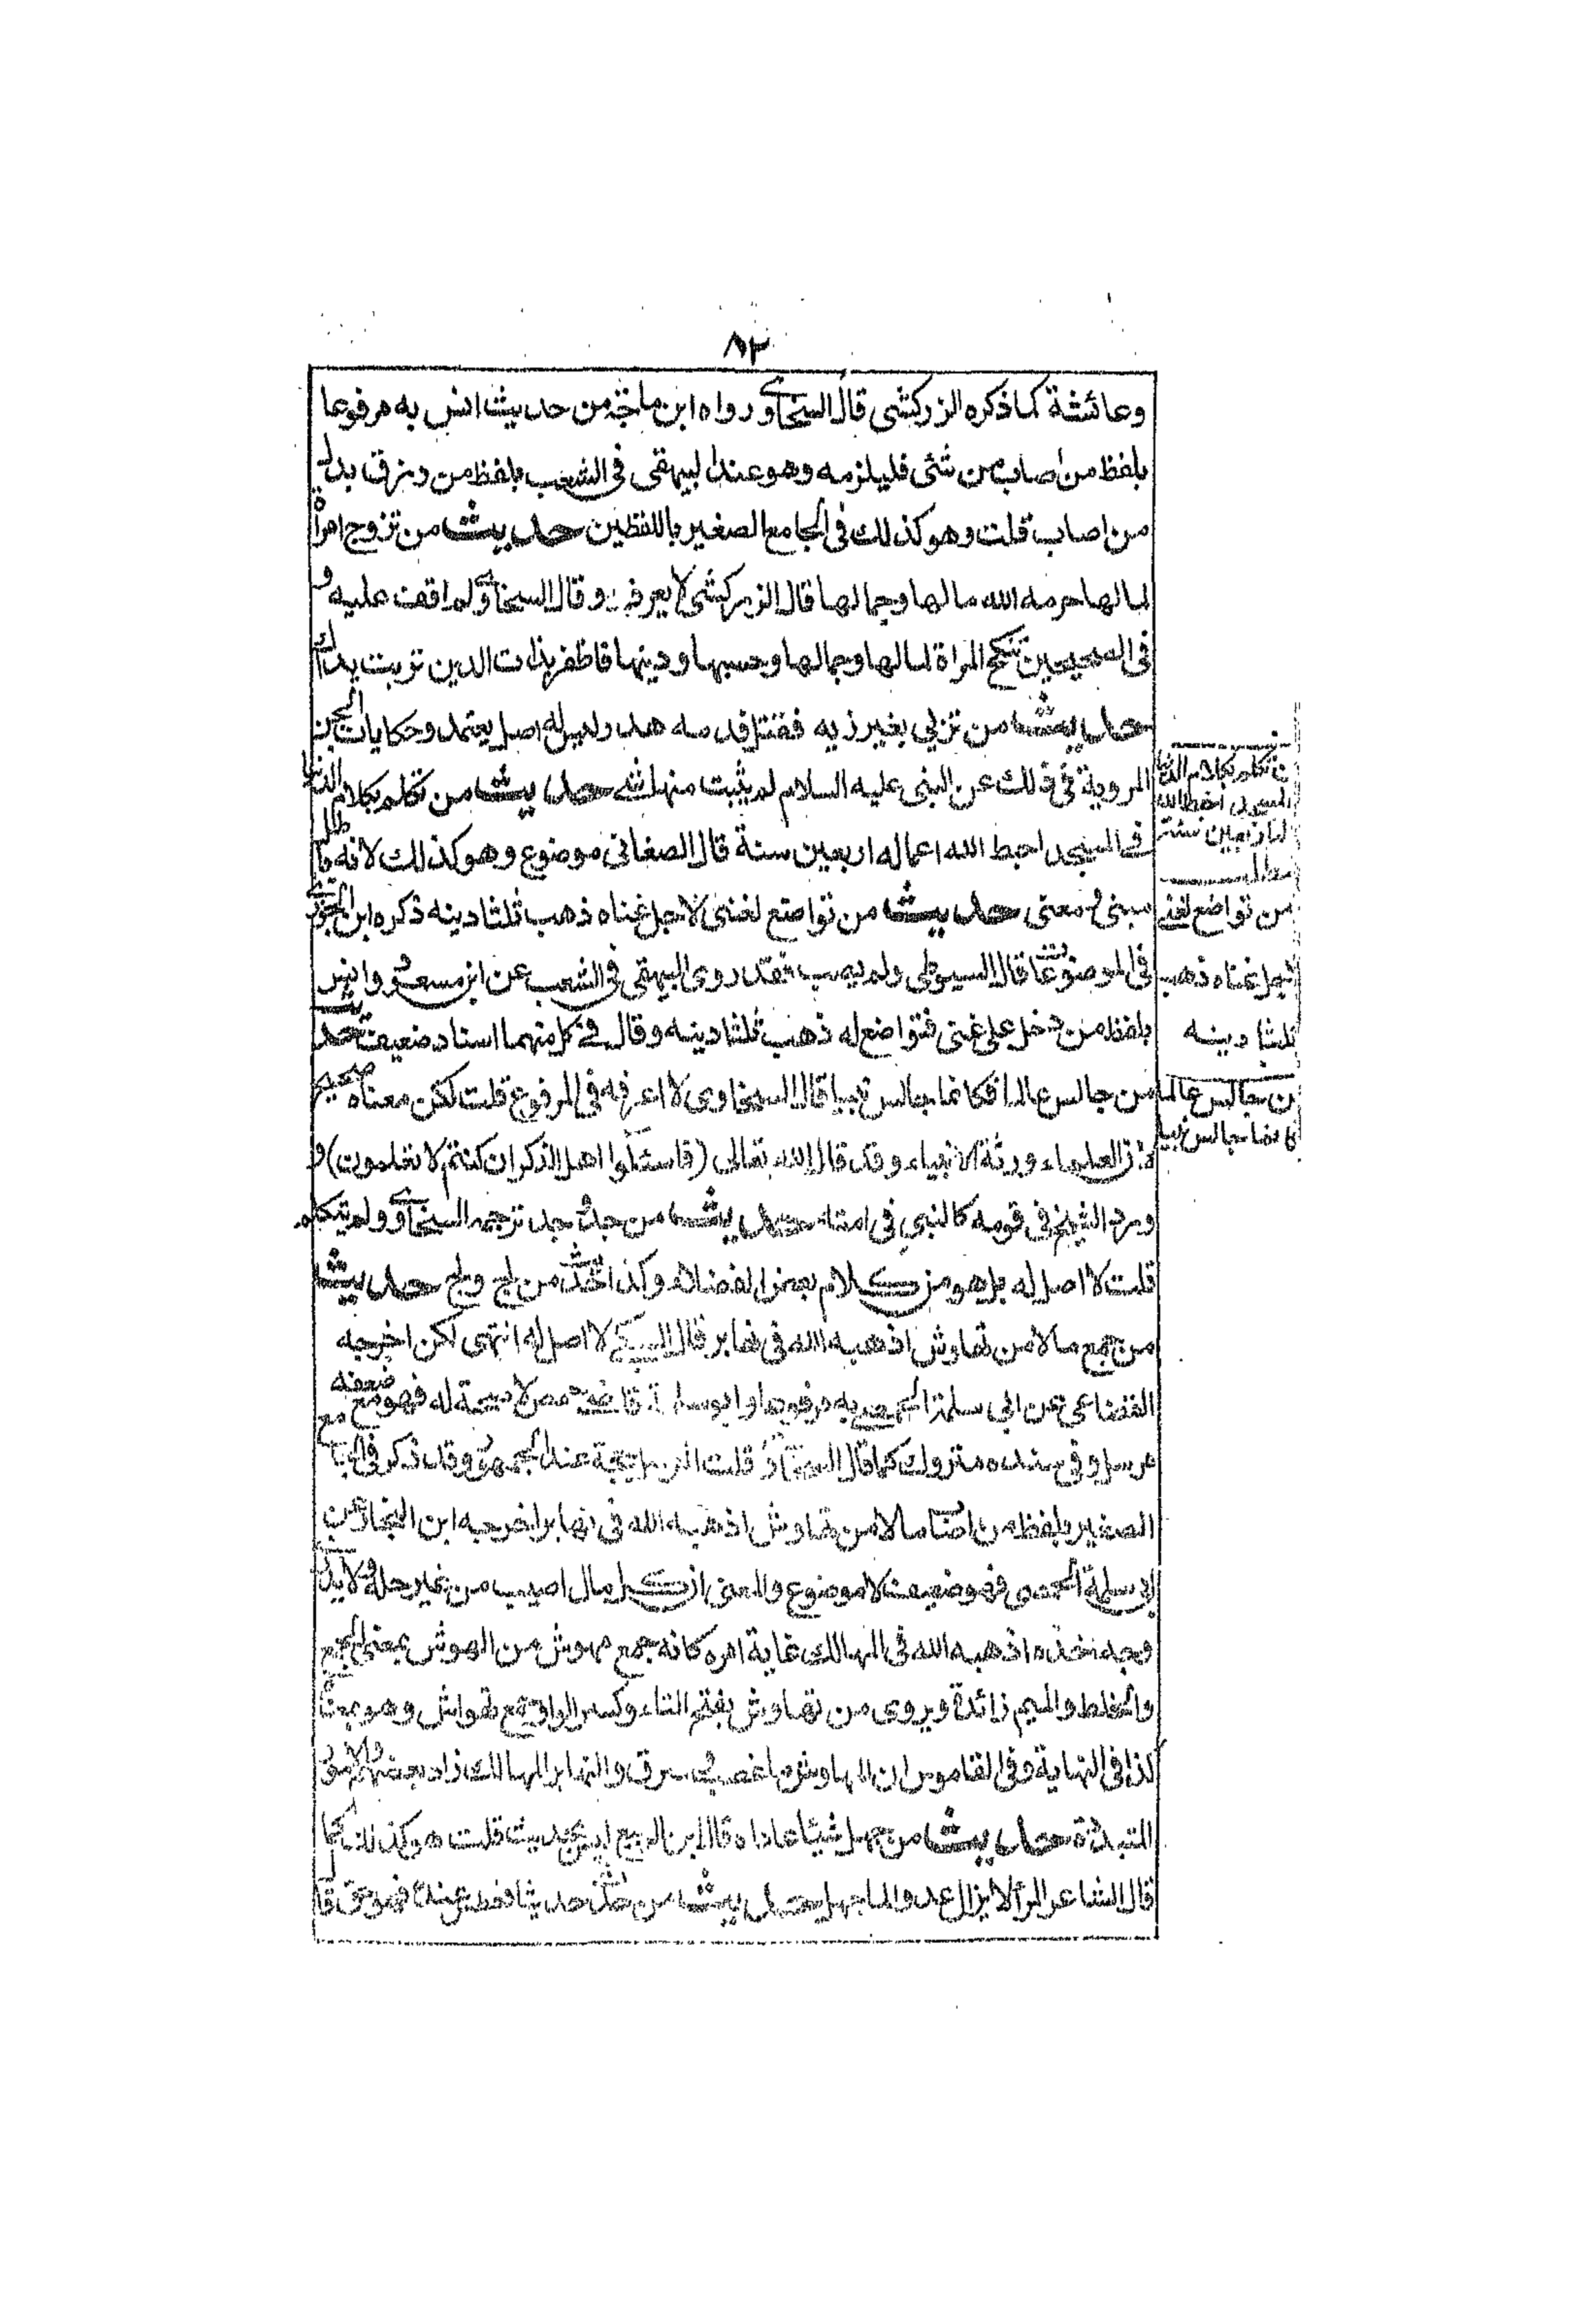 ٨٢
وعائشة كماذكره الزركشى قال السخاوى ورواه ابن ماجة من حديث انس به مرفوعا
بلفظ من اصاب من شئى فليلزمه وهو عند البيهقى فى الشعب بلفظ من رزق بدل
من اصاب قلت وهو كذلك فى الجامع الصغير باللفظين حديث من تزوج امرأة
لمالها حرمه الله مالها وجمالها قال الزركشى لا يعرف وقال السخاوى لم اقف عليه و
فى الصحيحين تنكح المراة لمالها وجمالها وحسبها ودينها فاظفر بذات الدين تربت يداك
حديث من تزيى بغير زيه فقتل فدمه هدر وليس له اصل يعتمد وحكايات الجن
المروية فى ذلك عن النبى عليه السلام لم يثبت منها شئ حديث من تكلم بكلام الدنيا
فى المسجد احبط الله اعماله اربعين سنة قال الصغانى موضوع وهو كذلك لانه باطل
مبنى و معنى حديث من تواضع لغنى لاجل غناه ذهب ثلثا دينه ذكره ابن الجوزى
فى الموضوعات قال السيوطى ولم يصب فقد روى البيهقى فى الشعب عن ابن مسعود وانس
بلفظ من دخل على غنى فتواضع له ذهب ثلثا دينه وقال فى كل منهما اسناد ضعيف حديث
من جالس عالما فكانما جالس نبيا قال السخاوى لا اعرفه فى المرفوع قلت لكن معناه صحيح
لان العلماء ورثة الانبياء وقد قال الله تعالى (فاسئلوا اهل الذكر ان كنتم لا تعلمون) و
ورد الشيخ فى قومه كالنبى فى امته حديث من جد وجد ترجمه السخاوى ولم يتكلم
قلت لا اصل له بل هو من كلام بعض الفضلاء وكذا حديث من لج ولج حديث
من جمع مالا من تهاوش اذهبه الله فى نهابر قال السبكى لا اصل له انتهى لكن اخرجه
القضاعى عن ابى سلمة الحمصى به مرفوعا وابو سلمة لا صحبة له فهو مع ضعفه
مرسل وفى سنده متروك كما قال السخاوى قلت المرسل حجة عند الجمهور وقد ذكر فى الجامع
الصغير بلفظ من اصاب مالا من تهاوش اذهبه الله فى نهابر اخرجه ابن النجار عن
ابى سلمة الحمصى فهو ضعيف لا موضوع والمعنى ان كل مال اصيب من غير حله ولا يدرى
وجه اخذه اذهبه الله فى المهالك غاية امره كانه جمع مهوش من الهوش بمعنى الجمع
والخلط والميم زائدة ويروى من تهاوش بفتح التاء وكسر الواو جمع تهواش وهو بمعناه
كذا فى النهاية وفى القاموس ان المهاوش ما غصب و سرق والنهابر المهالك
حديث من جهل شيئا عاداه قال ابن الديبع ليس بحديث قلت هو كذلك كما
قال الشاعر المرأ لا يزال عدوا لما جهل حديث من حدث حديثا فعطس عنده فهو حق
من تكلم بكلام الدنيا
من تواضع لغنى
لاجل غناه ذهب
ثلثا دينه
من جالس عالما
فكانما جالس نبيا